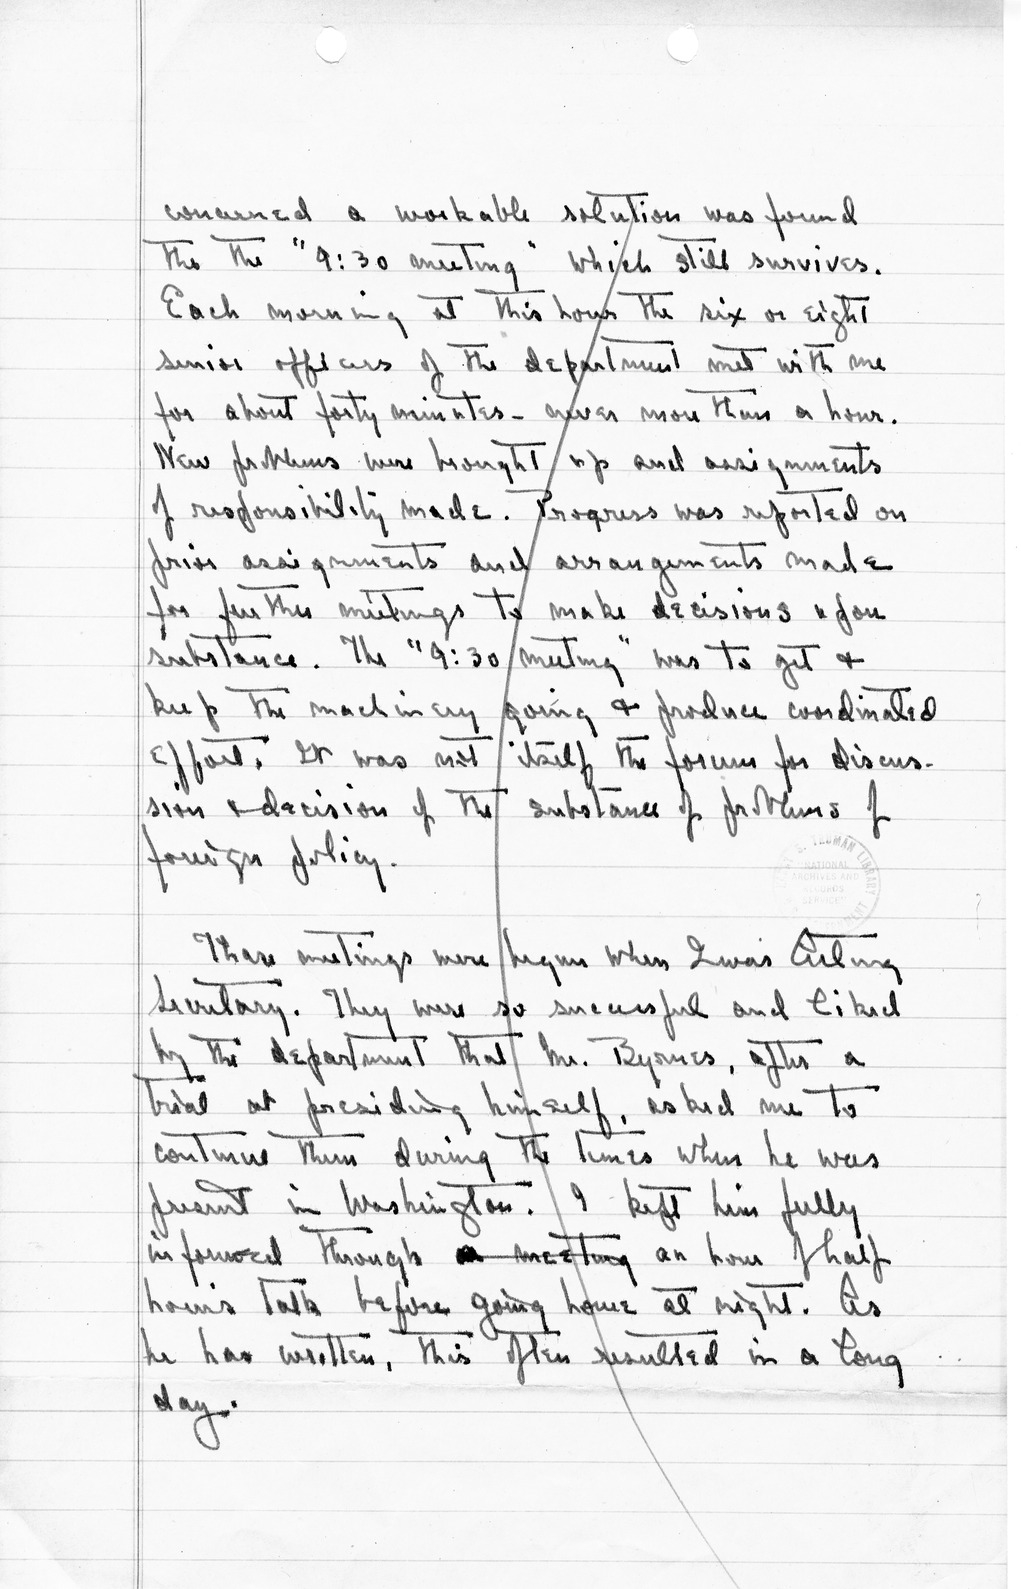 concerned a workable solution was found
the the "9:30 meeting" which still survives.
Each morning at this hour the six or eight
senior officers of the department met with me
for about forty minutes - never more than a hour.
New problems were brought up and assignments
of responsibility made. Progress was reported on
prior assignments and arrangements made
for further meetings to make decisions upon
substance. The "9:30 meeting" was to get &
keep the machinery going & produce coordinated
effort. It was not itself the forum for discus-
sion & decision of the substance of problems of
foreign policy.
HARRY S. TRUMAN LIBRARY
"NATIONAL
ARCHIVES AND
RECORDS
SERVICE"
These meetings were begun when I was Acting
Secretary. They were so successful and liked
by the department that Mr. Byrnes, after a
trial at presiding himself, asked me to
continue them during the times when he was
present in Washington. I kept him fully
informed through a meeting an hour of half
hour's talk before going home at night. As
he has written, this often resulted in a long
day.